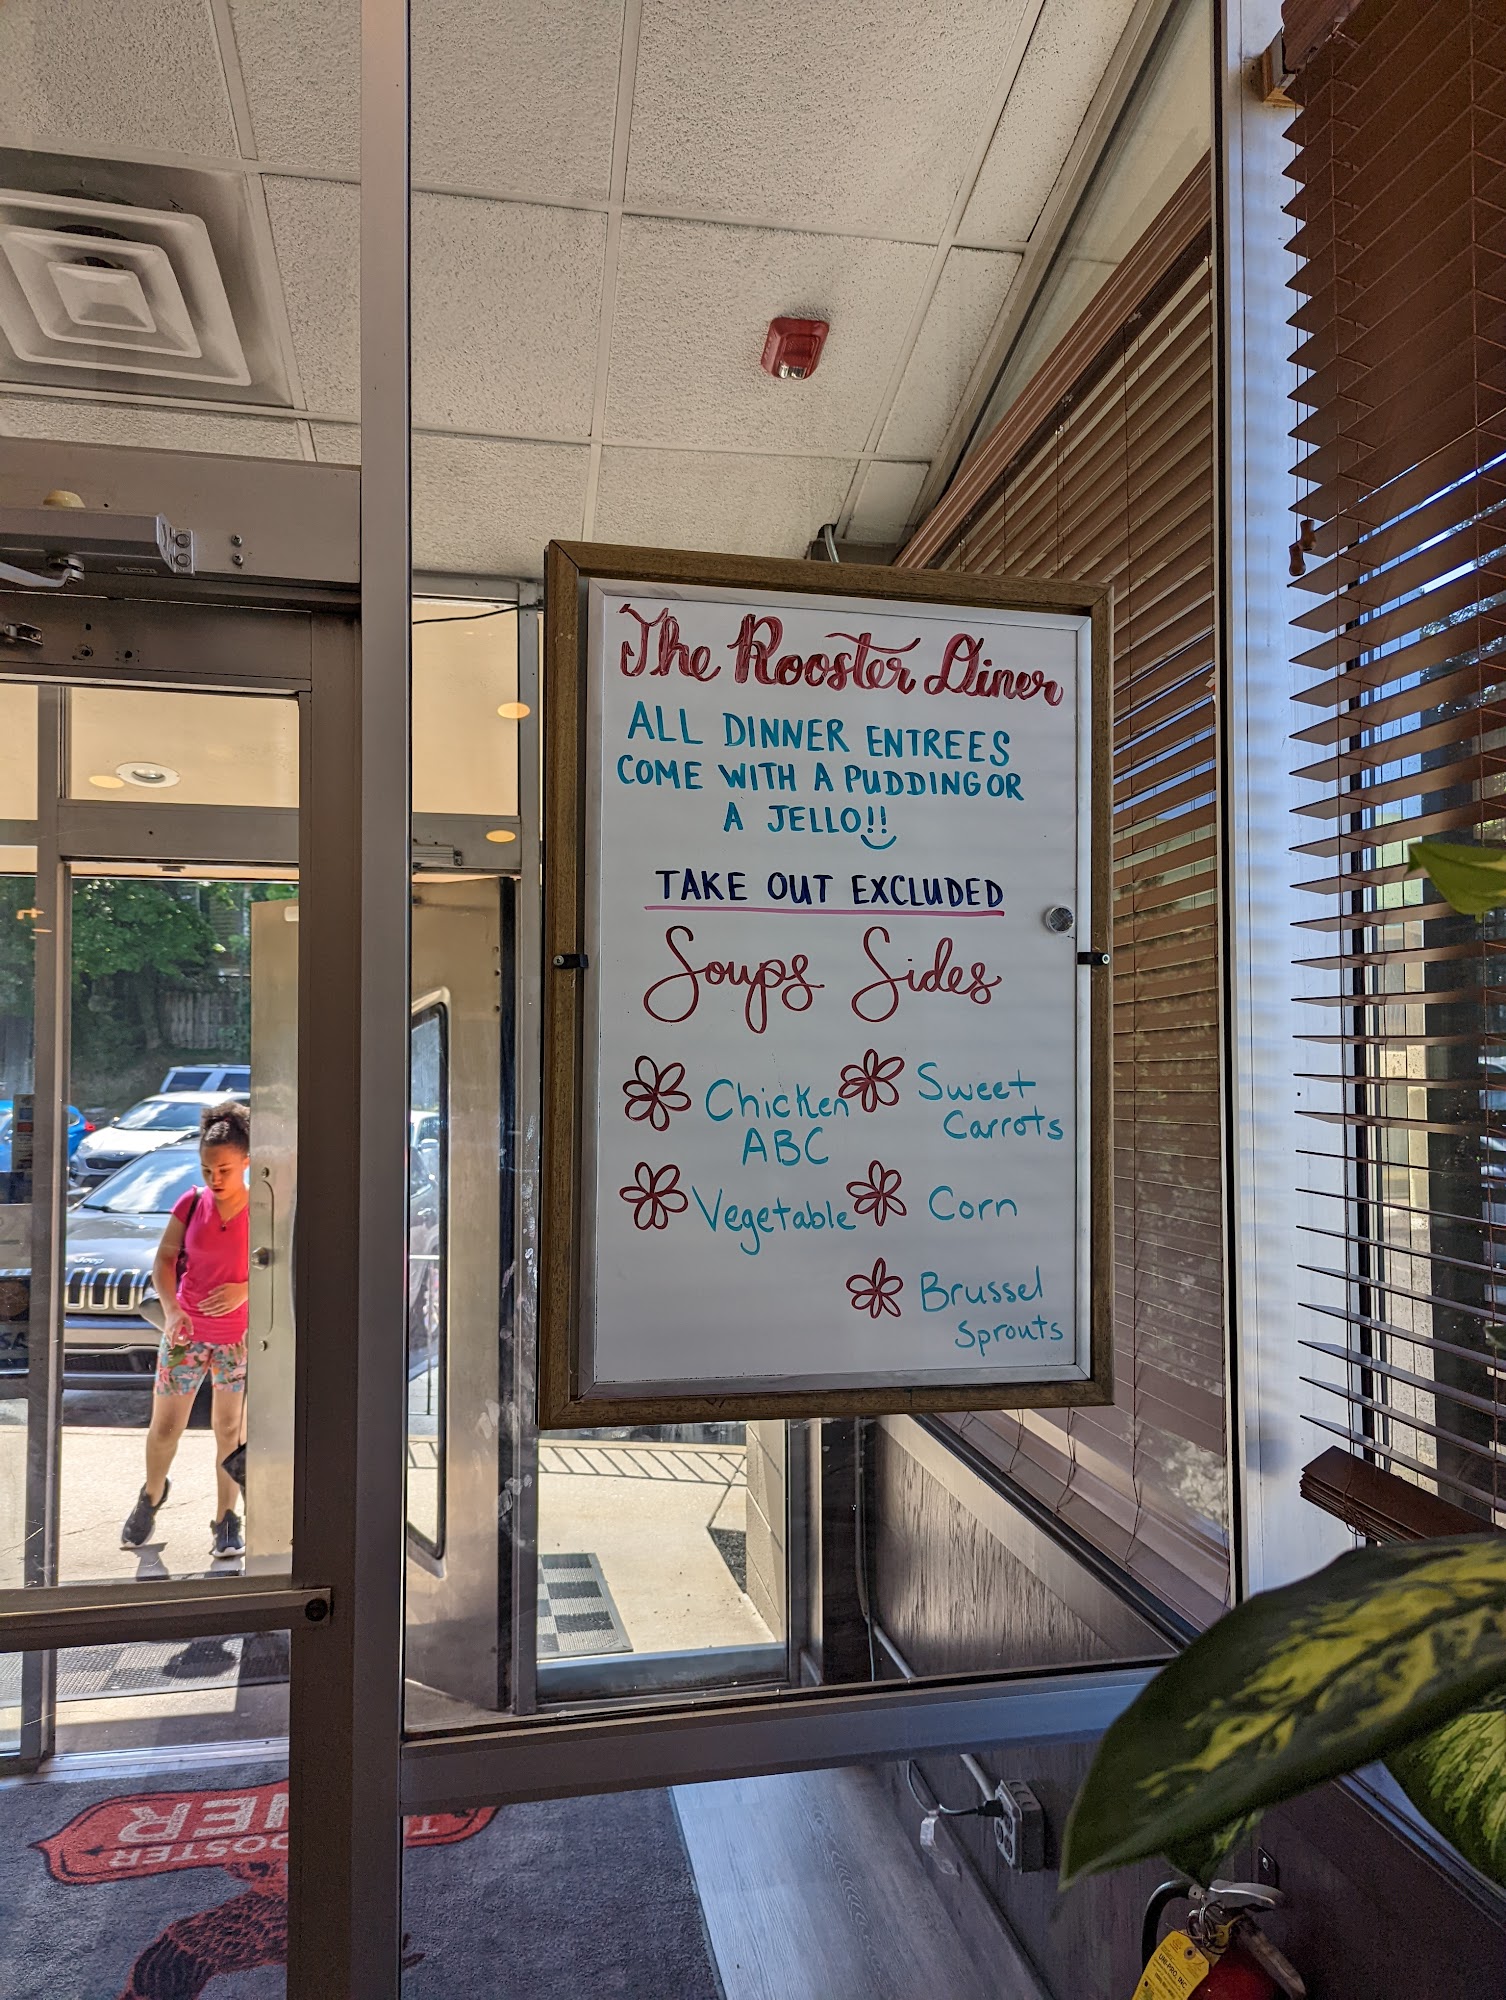 The Rooster Diner
ALL DINNER ENTREES
COME WITH A PUDDING OR
A JELLO!!
TAKE OUT EXCLUDED
Soups
Chicken
ABC
Vegetable
Sides
Sweet
Carrots
Corn
Brussel
Sprouts
Jeep
VISA
ROOSTER
UNI-PRO, INC.